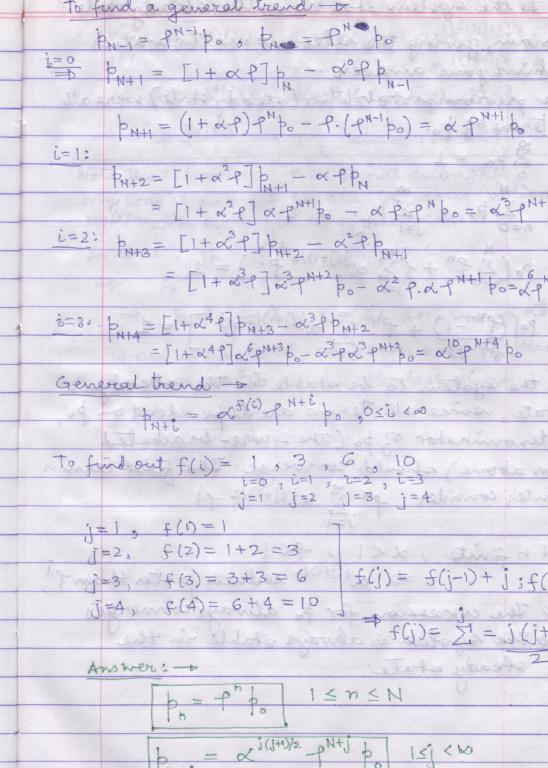 To find a general trend →
p_{N-1} = ρ^{N-1} p_0 , p_N = ρ^N p_0
i=0 ⇒ p_{N+1} = [1 + αρ] p_N − α^0 ρ p_{N-1}
p_{N+1} = (1 + αρ) ρ^N p_0 − ρ·(ρ^{N-1} p_0) = α ρ^{N+1} p_0
i=1: p_{N+2} = [1 + α^2 ρ] p_{N+1} − αρ p_N
= [1 + α^2 ρ] α ρ^{N+1} p_0 − α ρ·ρ^N p_0 = α^3 ρ^{N+
i=2: p_{N+3} = [1 + α^3 ρ] p_{N+2} − α^2 ρ p_{N+1}
= [1 + α^3 ρ] α^3 ρ^{N+2} p_0 − α^2 ρ·α ρ^{N+1} p_0 = α^6 ρ^N
i=3: p_{N+4} = [1 + α^4 ρ] p_{N+3} − α^3 ρ p_{N+2}
= [1 + α^4 ρ] α^6 ρ^{N+3} p_0 − α^3 ρ α^3 ρ^{N+2} p_0 = α^{10} ρ^{N+4} p_0
General trend →
p_{N+i} = α^{f(i)} ρ^{N+i} p_0 , 0≤i<∞
To find out f(i) = 1 , 3 , 6 , 10
i=0 , i=1 , i=2 , i=3
j=1 j=2 j=3 j=4
j=1 , f(1) = 1
j=2, f(2) = 1+2 = 3
j=3, f(3) = 3+3 = 6
j=4, f(4) = 6+4 = 10
f(j) = f(j-1) + j ; f(
⇒ f(j) = Σ^j = j(j+ / 2
Answer: →
p_n = ρ^n p_0 1 ≤ n ≤ N
= α^{j(j+1)/2} ρ^{N+j} p_0 1≤j<∞